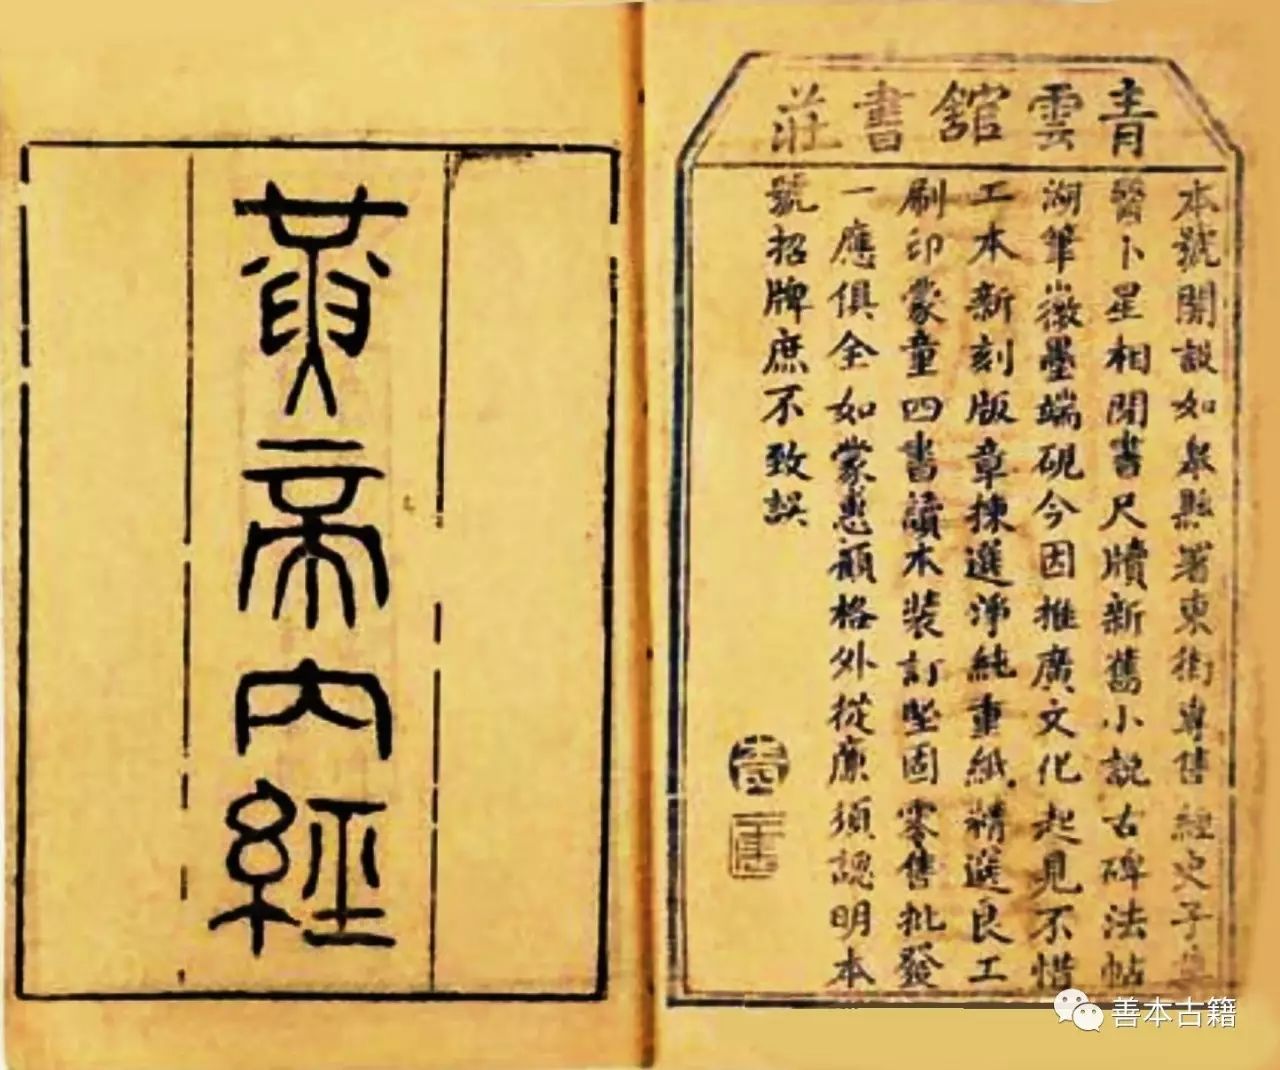 青雲館書莊
本號開設如皋縣署東街專售經史子集
醫卜星相閒書尺牘新舊小說古碑法帖
湖筆徽墨端硯今因推廣文化起見不惜
工本新刻版章揀選淨純重紙精選良工
刷印蒙童四書讀本裝訂堅固零售批發
一應俱全如蒙惠顧格外從廉須認明本
號招牌庶不致誤
黃帝內經
善本古籍